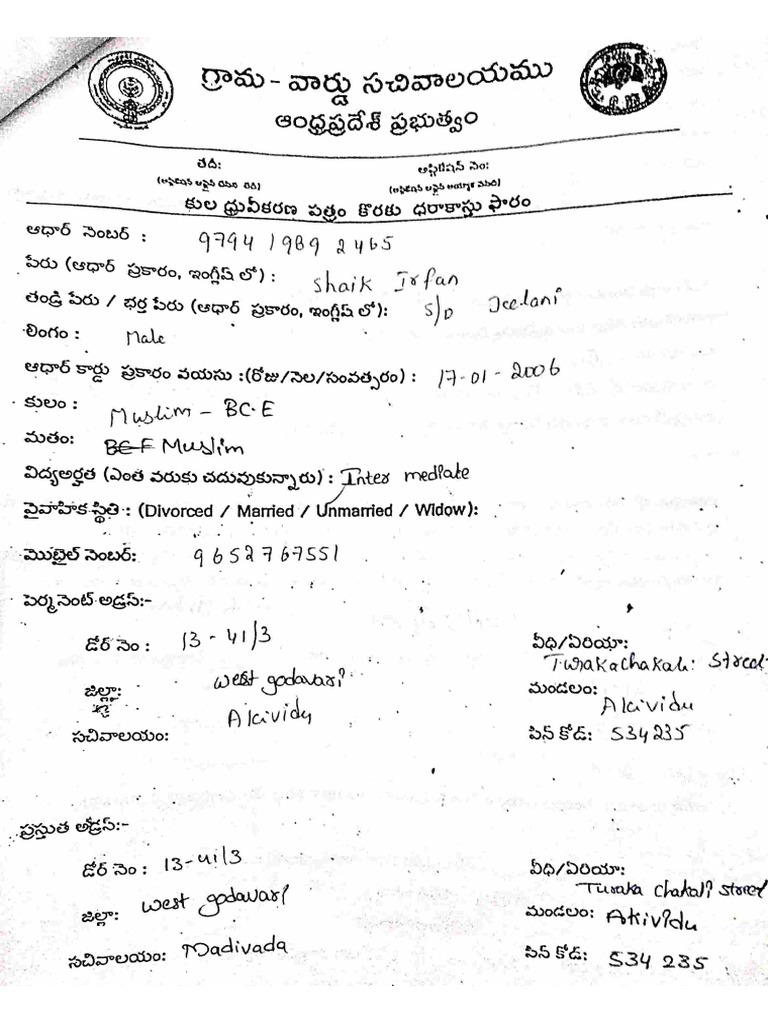 గ్రామ - వార్డు సచివాలయము
ఆంధ్రప్రదేశ్ ప్రభుత్వం
తేది: అప్లికేషన్ నెం:
కుల ధ్రువీకరణ పత్రం కొరకు ధరాకాస్తు ఫారం
ఆధార్ నెంబర్ : 9794 1989 2465
పేరు (ఆధార్ ప్రకారం, ఇంగ్లీష్ లో) : Shaik Irfan
తండ్రి పేరు / భర్త పేరు (ఆధార్ ప్రకారం, ఇంగ్లీష్ లో): S/o Jeelani
లింగం: Male
ఆధార్ కార్డు ప్రకారం వయసు :(రోజు/నెల/సంవత్సరం) : 17-01-2006
కులం : Muslim - BC.E
మతం: Muslim
విద్యఅర్హత (ఎంత వరుకు చదువుకున్నారు) : Inter mediate
వైవాహిక స్థితి : (Divorced / Married / Unmarried / Widow):
మొబైల్ నెంబర్: 9652767551
పెర్మనెంట్ అడ్రస్:-
డోర్ నెం : 13-41/3 వీధి/ఏరియా:
Turakachakali Street
జిల్లా: West godavari మండలం: Akividu
సచివాలయం: Akividu పిన్ కోడ్: 534235
ప్రస్తుత అడ్రస్:-
డోర్ నెం : 13-41/3 వీధి/ఏరియా:
Turaka chakali street
జిల్లా: West godavari మండలం: Akividu
సచివాలయం: Madivada పిన్ కోడ్: 534 235